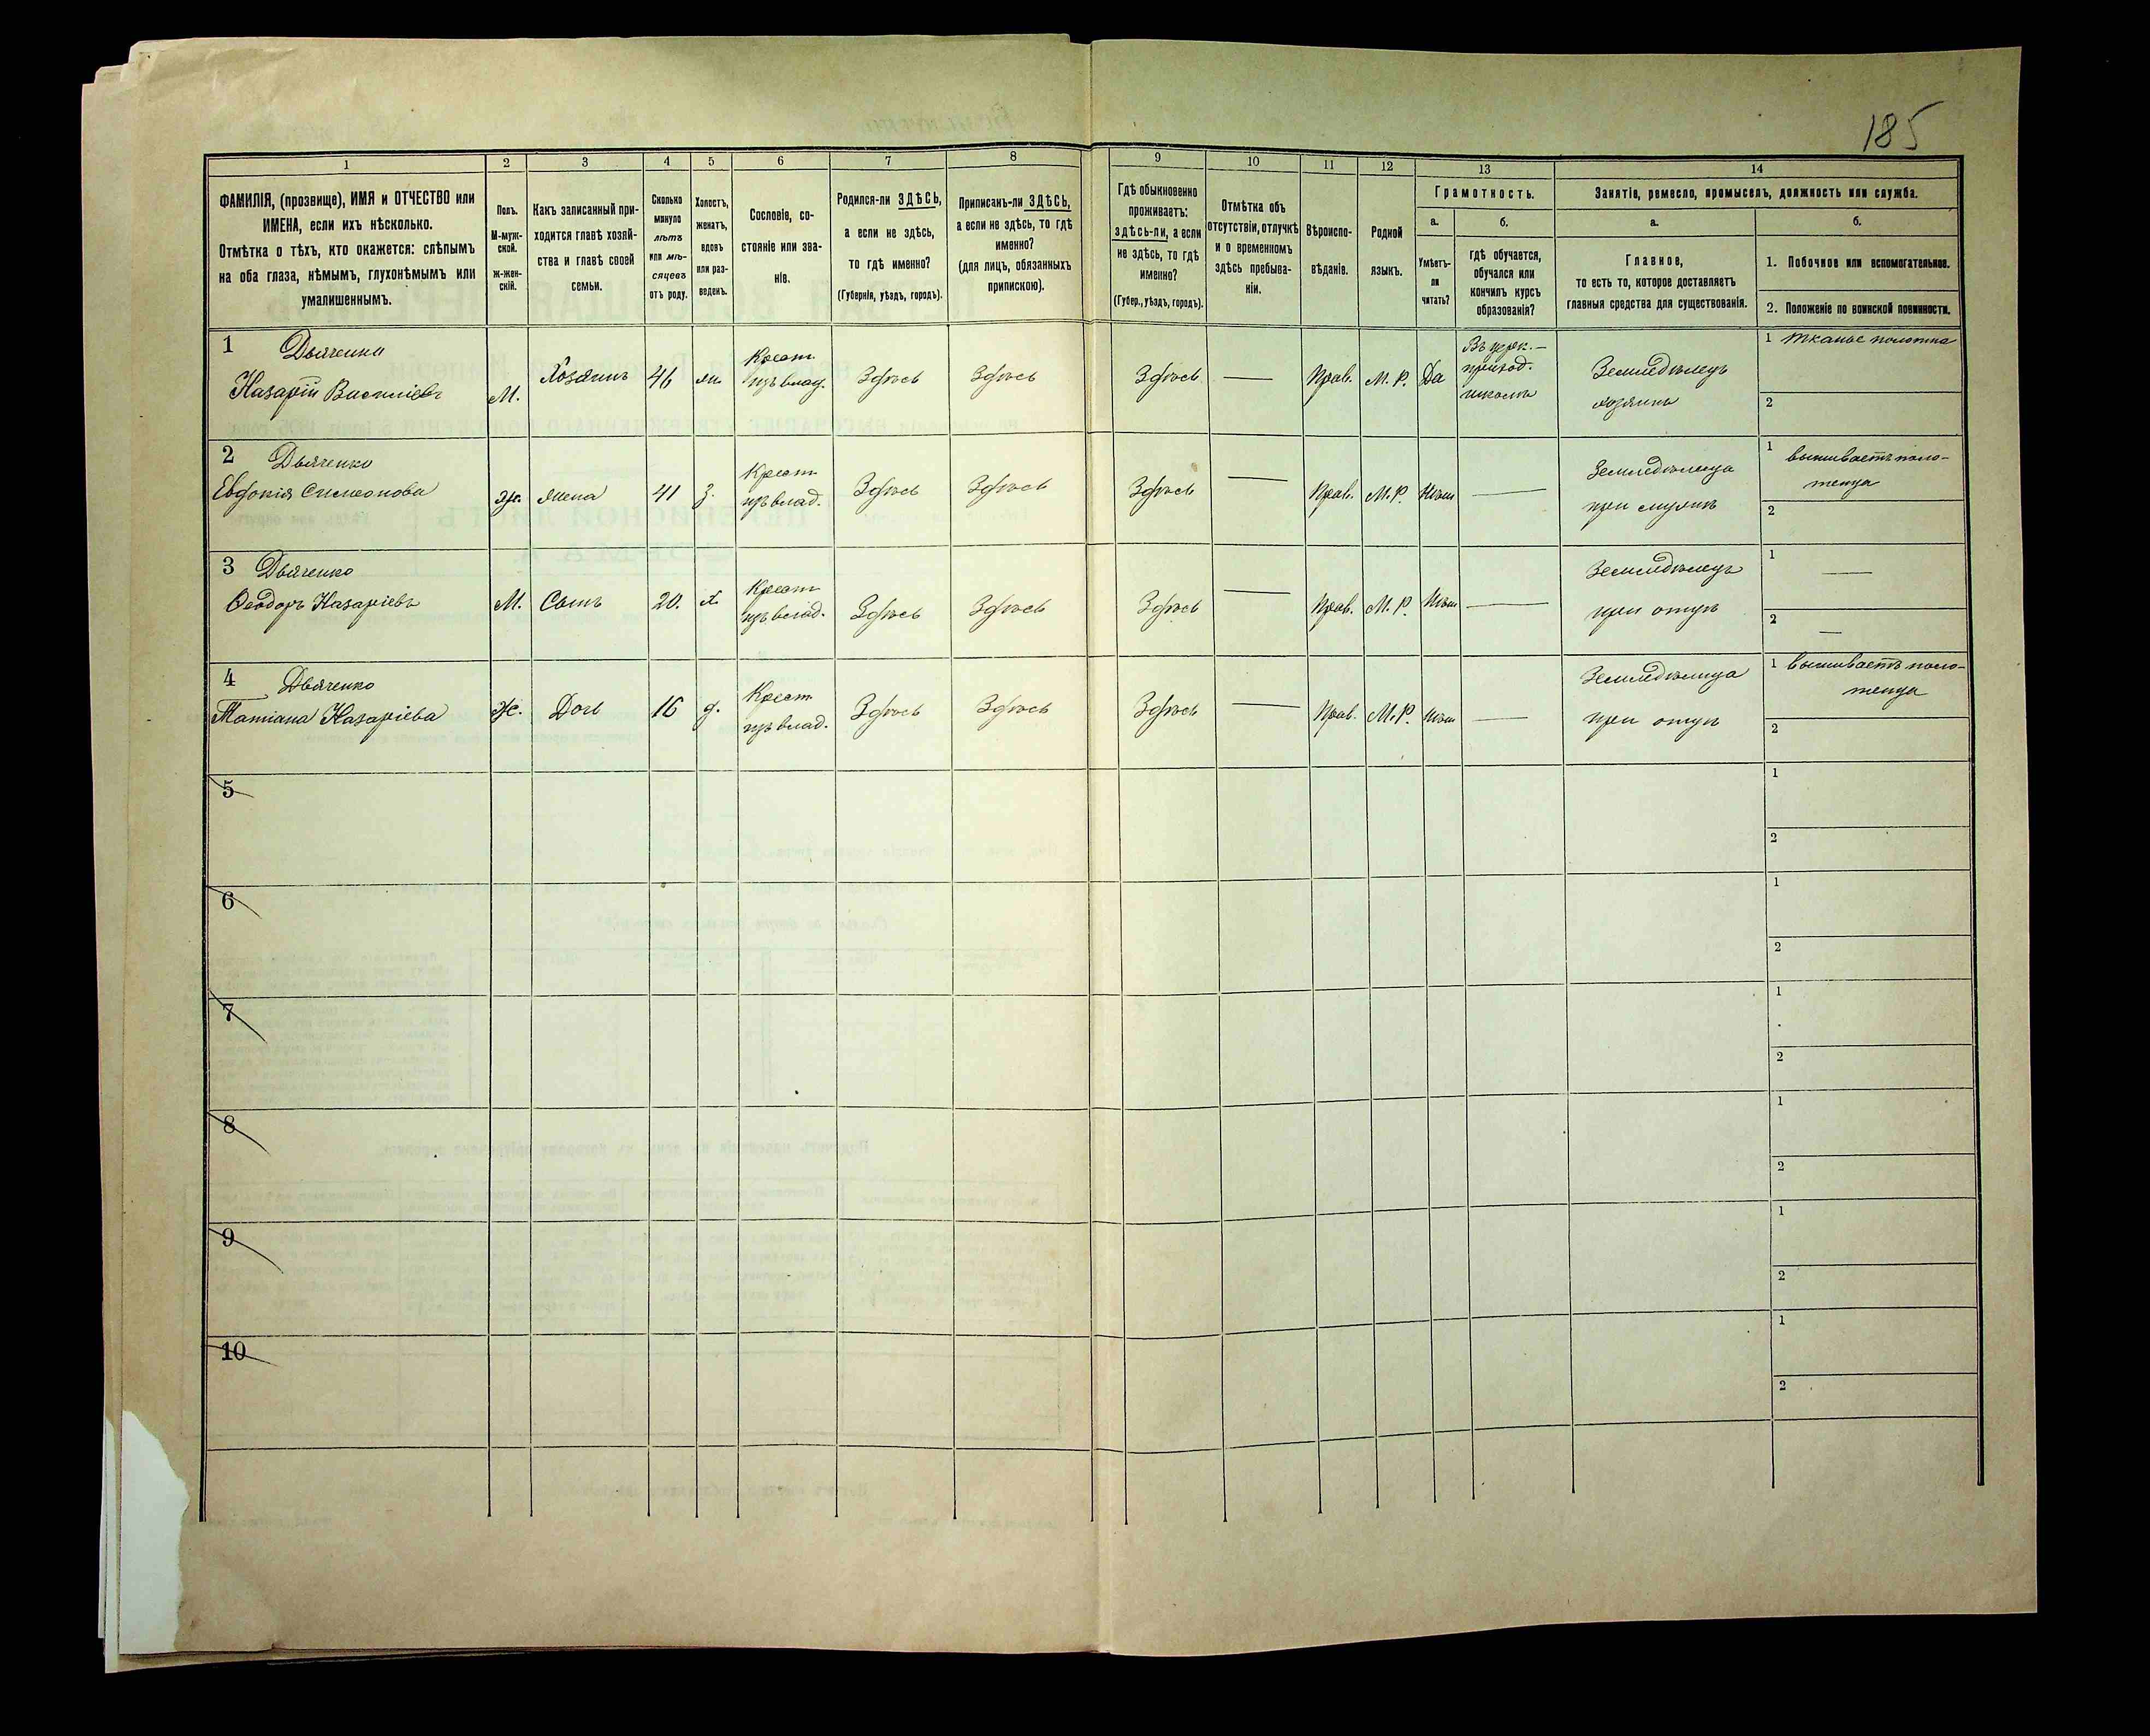 185
1
2
3
4
5
6
7
8
9
10
11
12
13
14
ФАМИЛІЯ, (прозвище), ИМЯ и ОТЧЕСТВО или
ИМЕНА, если ихъ нѣсколько.
Отмѣтка о тѣхъ, кто окажется: слѣпымъ
на оба глаза, нѣмымъ, глухонѣмымъ или
умалишеннымъ.
Полъ.
М-муж-
ской.
ж-жен-
скій.
Какъ записанный при-
ходится главѣ хозяй-
ства и главѣ своей
семьи.
Сколько
минуло
лѣтъ
или мѣ-
сяцевъ
отъ роду.
Холостъ,
женатъ,
вдовъ
или раз-
веденъ.
Сословіе, со-
стояніе или зва-
ніе.
Родился-ли ЗДѢСЬ,
а если не здѣсь,
то гдѣ именно?
(Губернія, уѣздъ, городъ).
Приписанъ-ли ЗДѢСЬ,
а если не здѣсь, то гдѣ
именно?
(для лицъ, обязанныхъ
припискою).
Гдѣ обыкновенно
проживаетъ:
здѣсь-ли, а если
не здѣсь, то гдѣ
именно?
(Губер., уѣздъ, городъ).
Отмѣтка объ
отсутствіи, отлучкѣ
и о временномъ
здѣсь пребыва-
ніи.
Вѣроиспо-
вѣданіе.
Родной
языкъ.
Грамотность.
а.
Умѣетъ-
ли
читать?
б.
гдѣ обучается,
обучался или
кончилъ курсъ
образованія?
Занятіе, ремесло, промыселъ, должность или служба.
а.
Главное,
то есть то, которое доставляетъ
главныя средства для существованія.
б.
1. Побочное или вспомогательное.
2. Положеніе по воинской повинности.
1 Дьяченко
Назарій Василіевъ
М.
Хозяинъ
46
жн.
Крест.
изъ влад.
Здѣсь
Здѣсь
Здѣсь
—
Прав.
М. Р.
Да
Въ церк.-
приход.
школѣ
Земледѣлецъ
хозяинъ
1 тканье полотна
2
2 Дьяченко
Евдокія Симеонова
Ж.
жена
41
з.
Крест.
изъ влад.
Здѣсь
Здѣсь
Здѣсь
—
Прав.
М. Р.
Нѣтъ
—
Земледѣлица
при мужѣ
1 вышиваетъ поло-
тенца
2
3 Дьяченко
Ѳеодоръ Назаріевъ
М.
Сынъ
20.
х.
Крест.
изъ влад.
Здѣсь
Здѣсь
Здѣсь
—
Прав.
М. Р.
Нѣтъ
—
Земледѣлецъ
при отцѣ
1 —
2 —
4 Дьяченко
Татіана Назаріева
Ж.
Дочь
16
д.
Крест.
изъ влад.
Здѣсь
Здѣсь
Здѣсь
—
Прав.
М. Р.
Нѣтъ
—
Земледѣлица
при отцѣ
1 вышиваетъ поло-
тенца
2
5
1
2
6
1
2
7
1
2
8
1
2
9
1
2
10
1
2